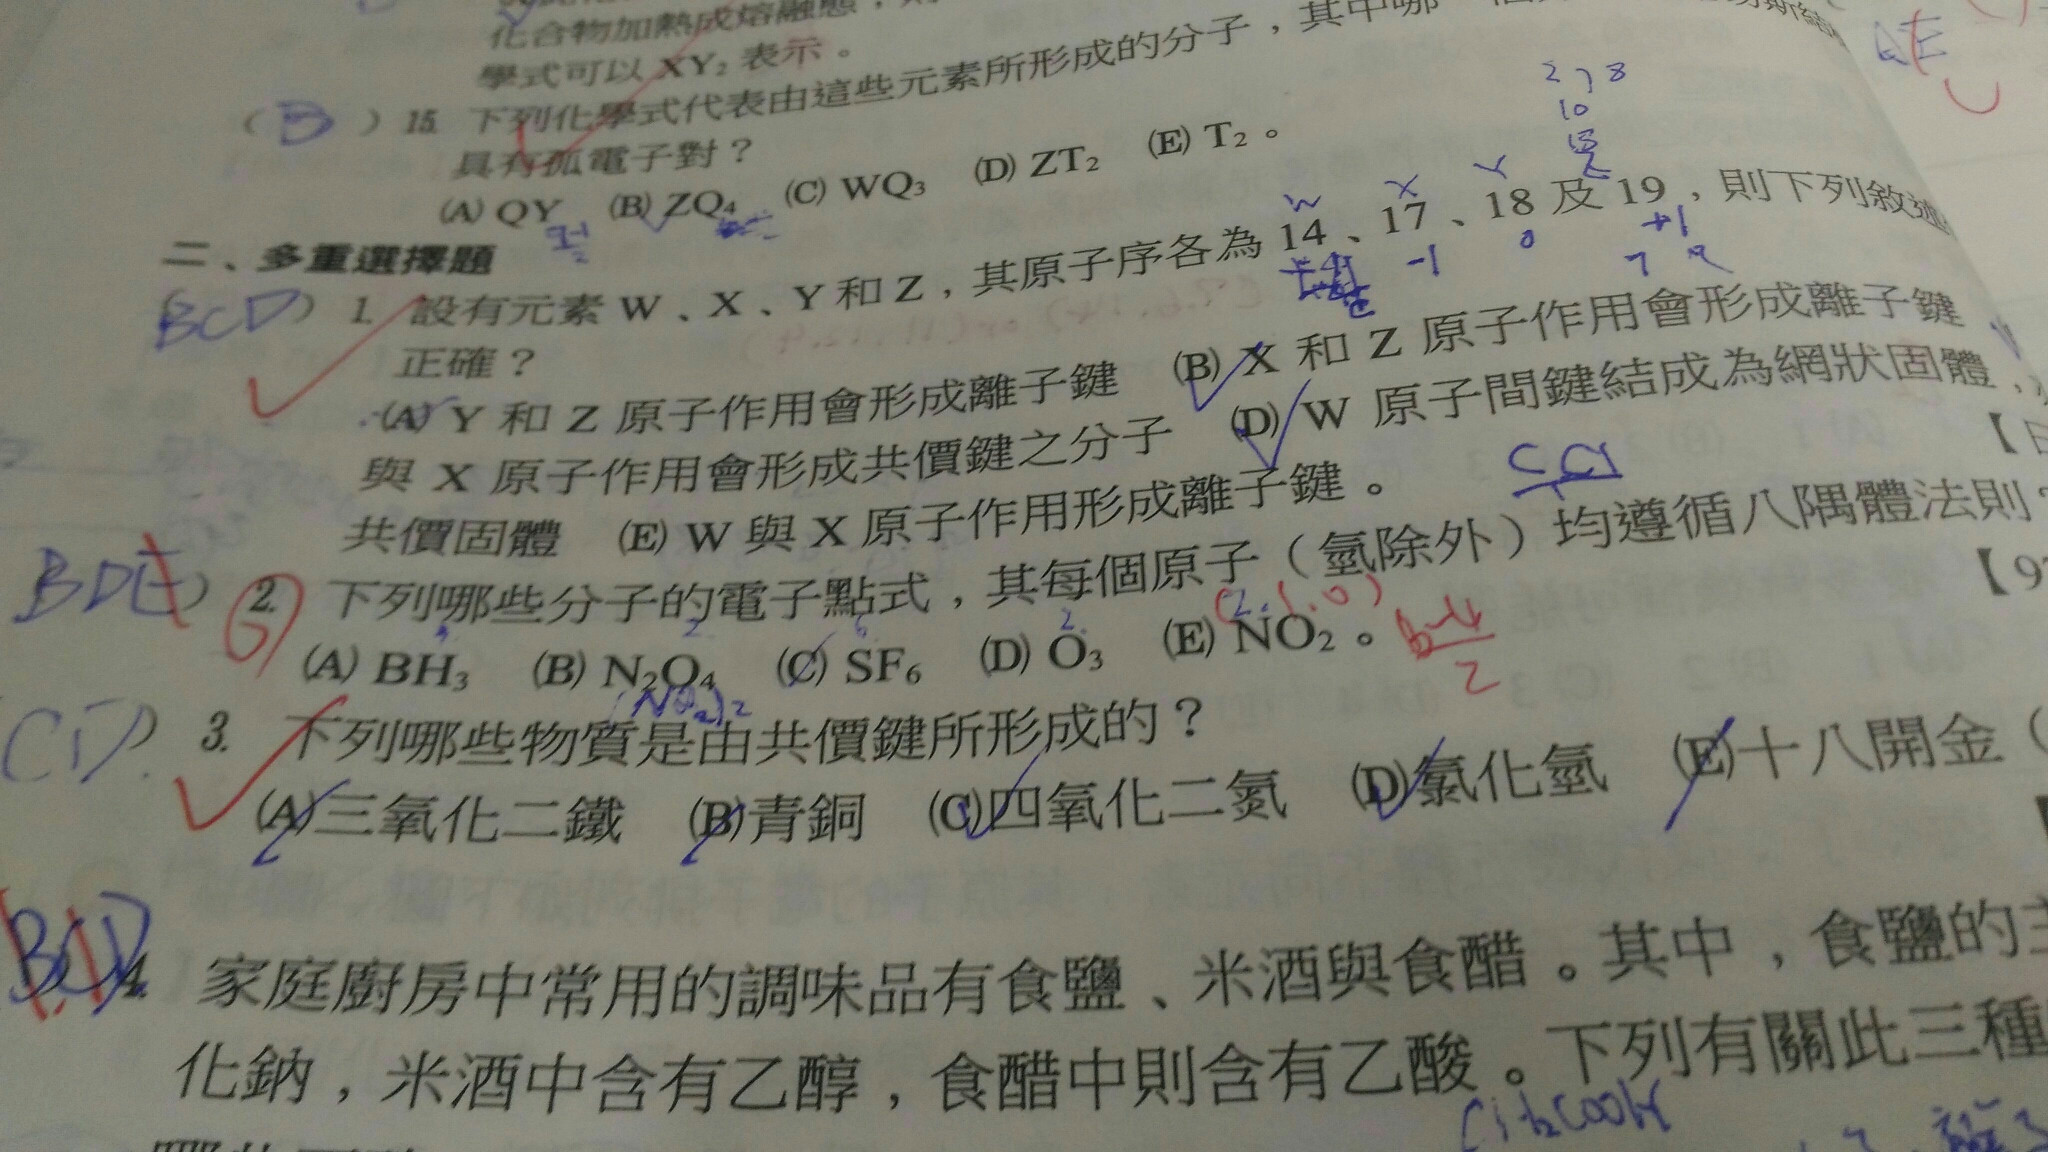 化合物加熱成熔融態，
學式可以 XY₂ 表示。
(B) 15. 下列化學式代表由這些元素所形成的分子，其中哪一
具有孤電子對？
(A) QY (B) ZQ₄ (C) WQ₃ (D) ZT₂ (E) T₂。
2, 8
10
二、多重選擇題
W X Y Z
(BCD) 1. 設有元素 W、X、Y 和 Z，其原子序各為 14、17、18 及 19，則下列敘述
-1 0 +1
正確？
(A) Y 和 Z 原子作用會形成離子鍵 (B) X 和 Z 原子作用會形成離子鍵
與 X 原子作用會形成共價鍵之分子 (D) W 原子間鍵結成為網狀固體，
共價固體 (E) W 與 X 原子作用形成離子鍵。
BDE) 2. 下列哪些分子的電子點式，其每個原子（氫除外）均遵循八隅體法則？
(A) BH₃ (B) N₂O₄ (C) SF₆ (D) O₃ (E) NO₂。
(NO₂)₂
CD) 3. 下列哪些物質是由共價鍵所形成的？
(A)三氧化二鐵 (B)青銅 (C)四氧化二氮 (D)氯化氫 (E)十八開金（
BCD 4. 家庭廚房中常用的調味品有食鹽、米酒與食醋。其中，食鹽的主
化鈉，米酒中含有乙醇，食醋中則含有乙酸。下列有關此三種